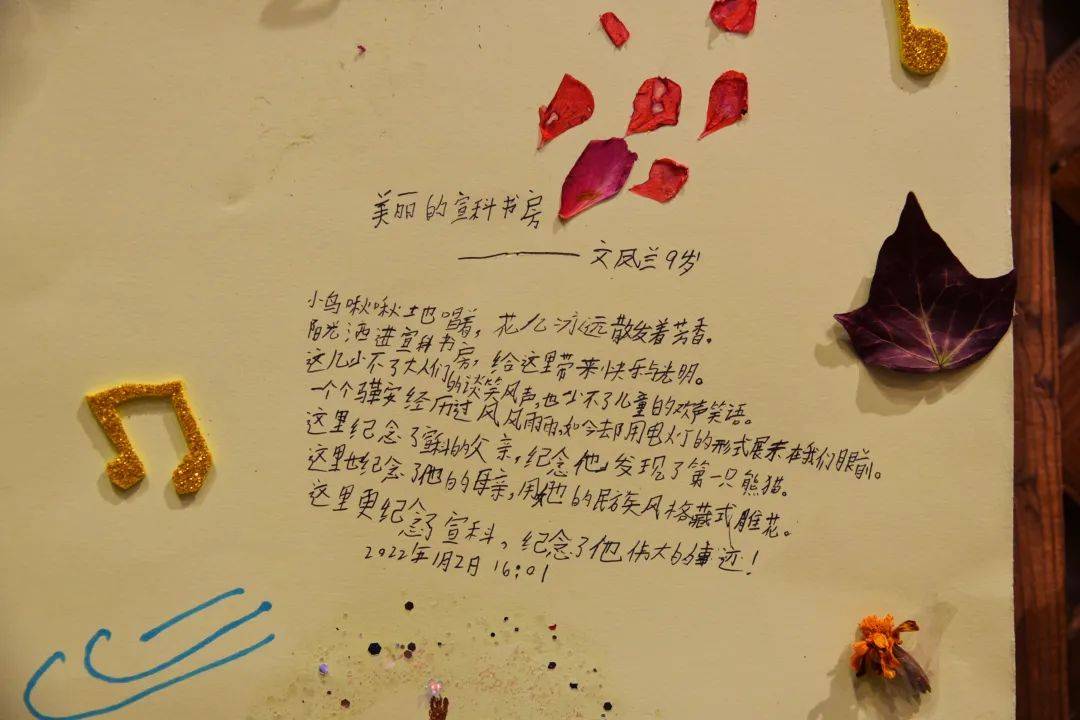 美丽的宣科书房
——文凤兰9岁
小鸟啾啾土也唱着，花儿永远散发着芳香。
阳光洒进宣科书房，给这里带来快乐与光明。
这儿少不了大人们的谈笑风声，也少不了儿童的欢声笑语。
一个个马鞍经历过风风雨雨，如今却用电灯的形式展来在我们眼前。
这里纪念了宣科的父亲，纪念他发现了第一只熊猫。
这里也纪念了他的母亲，用她的民族风格藏式雕花。
这里更纪念了宣科，纪念了他伟大的事迹！
2022年1月2日 16:01